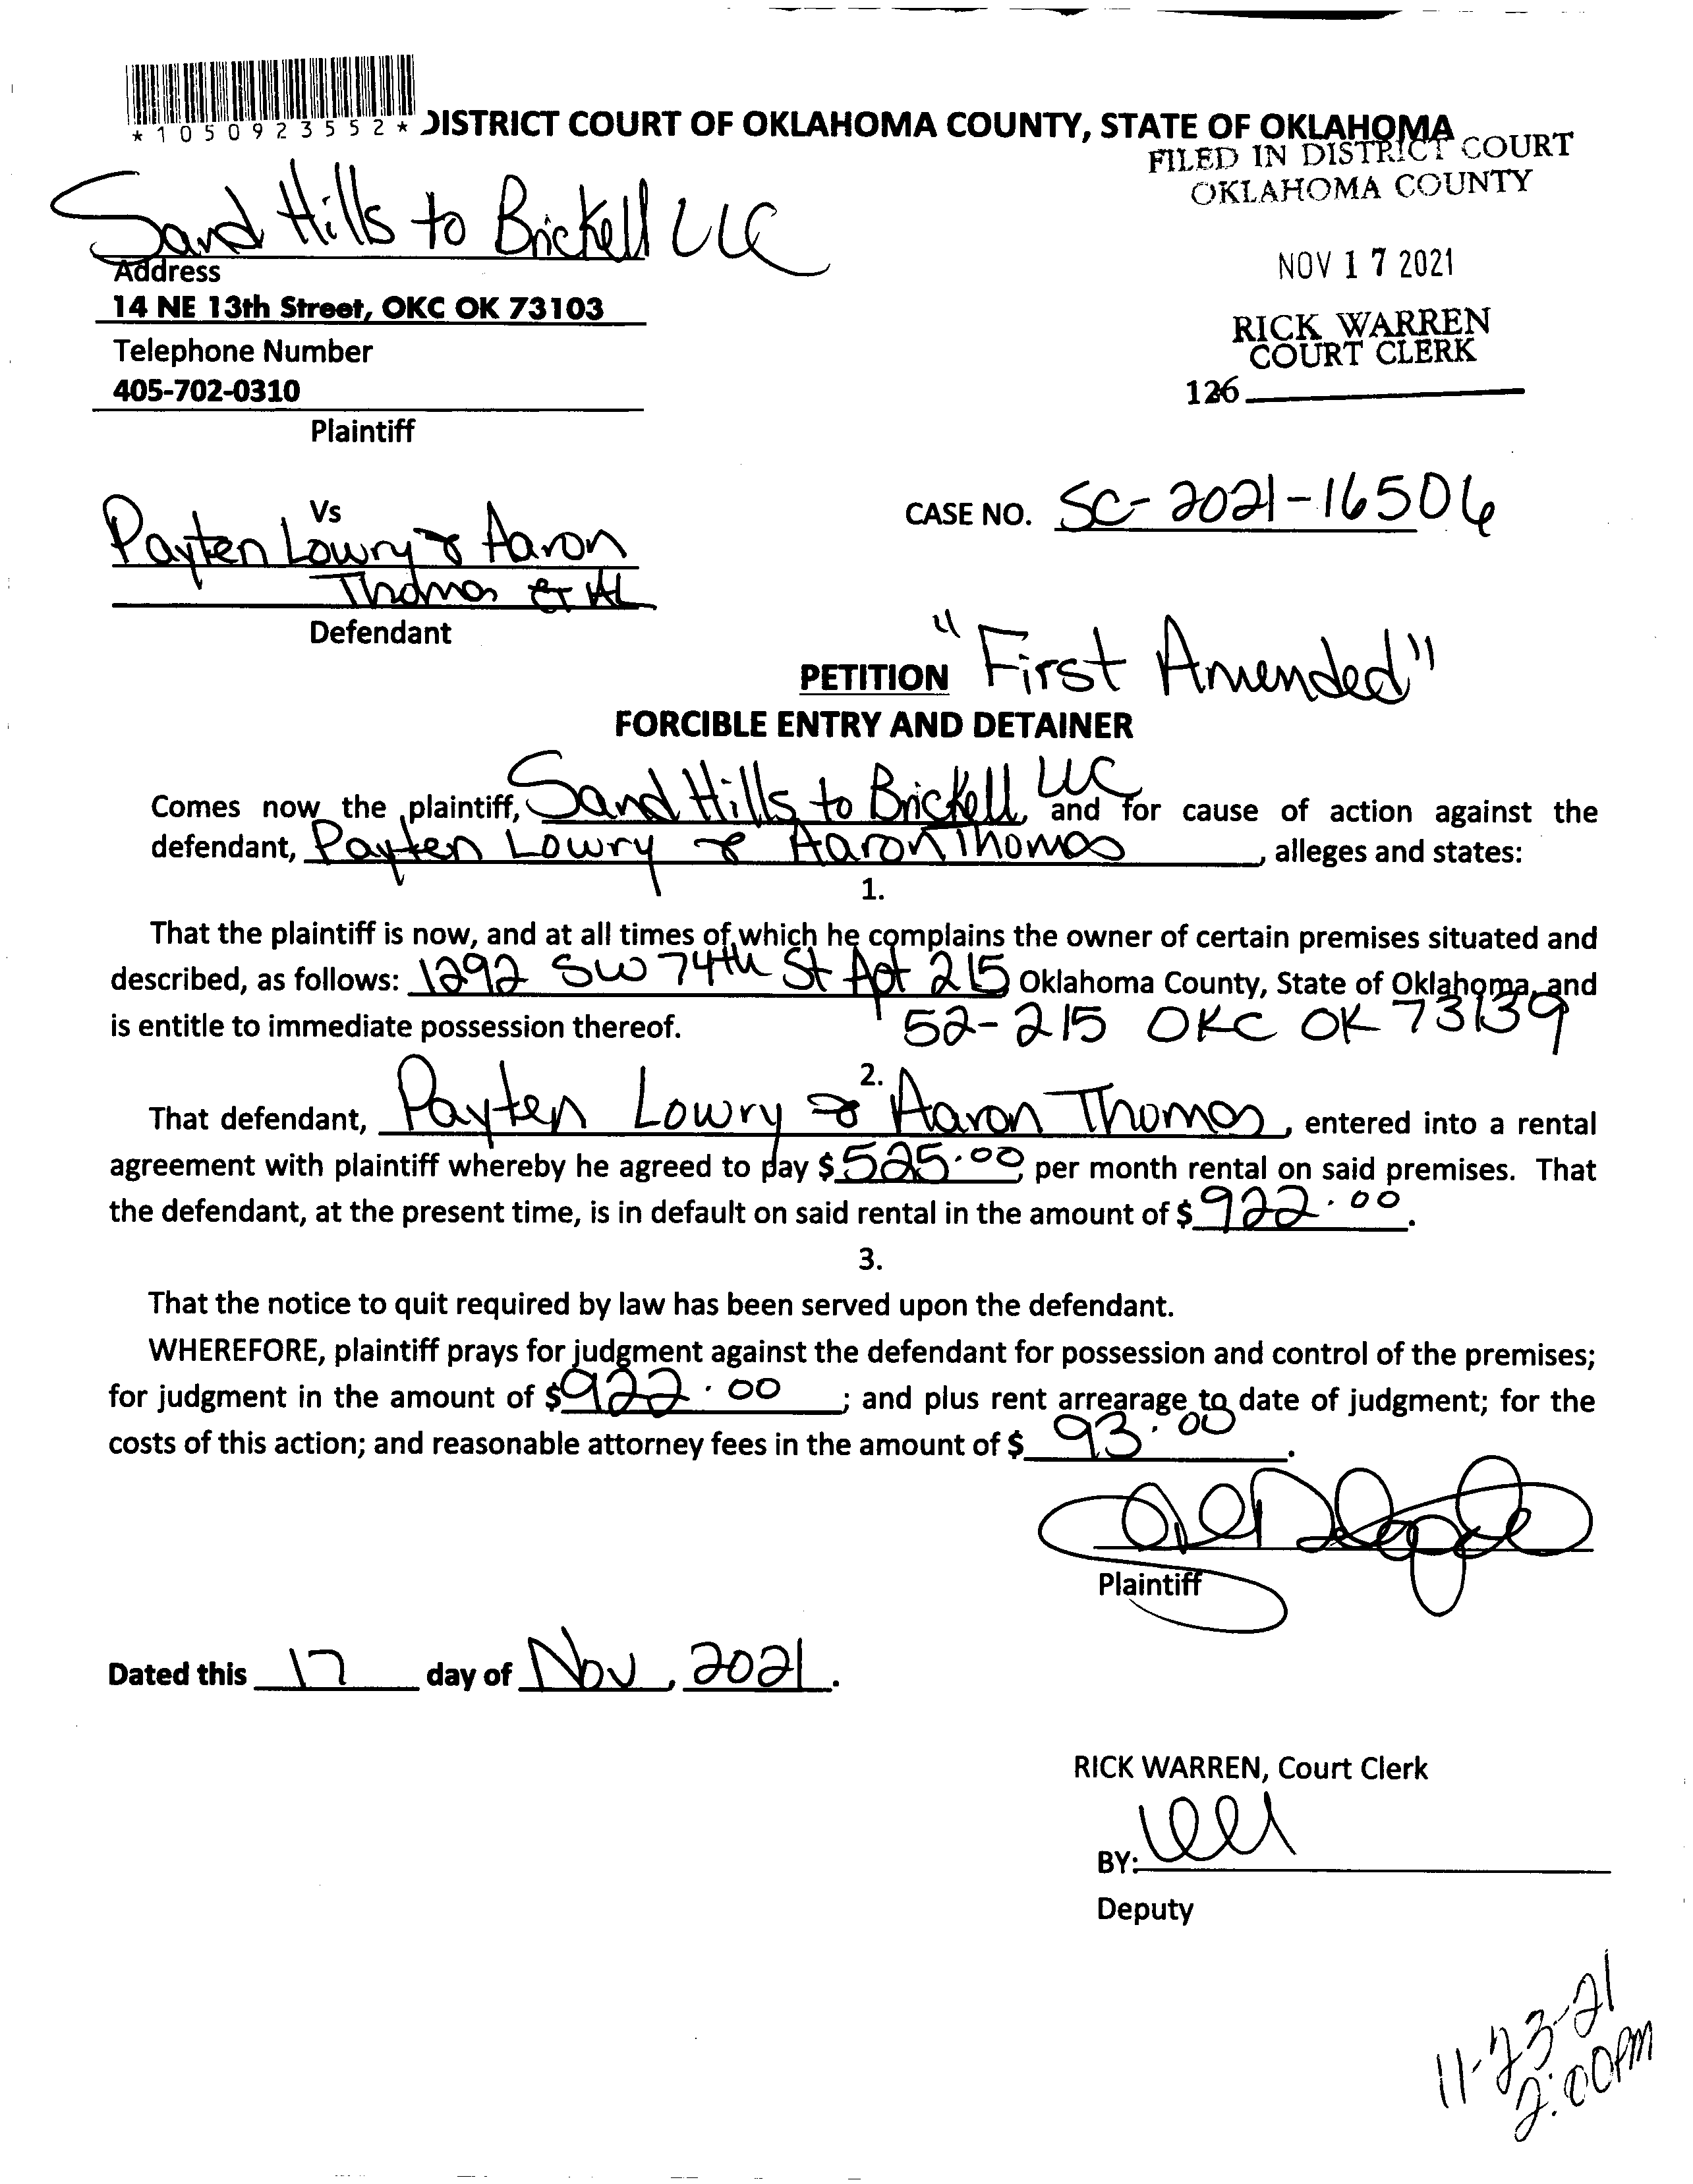 *1050923552*
DISTRICT COURT OF OKLAHOMA COUNTY, STATE OF OKLAHOMA
FILED IN DISTRICT COURT
OKLAHOMA COUNTY
Sand Hills to Brickell LLC
Address
14 NE 13th Street, OKC OK 73103
Telephone Number
405-702-0310
Plaintiff
NOV 17 2021
RICK WARREN
COURT CLERK
126
Vs
Payten Lowry & Aaron
Thomas ET AL
Defendant
CASE NO. SC-2021-16506
PETITION "First Amended"
FORCIBLE ENTRY AND DETAINER
Comes now the plaintiff, Sand Hills to Brickell LLC, and for cause of action against the
defendant, Payten Lowry & Aaron Thomas, alleges and states:
1.
That the plaintiff is now, and at all times of which he complains the owner of certain premises situated and
described, as follows: 1292 SW 74th St Apt 215 Oklahoma County, State of Oklahoma, and
is entitle to immediate possession thereof. 52-215 OKC OK 73139
2.
That defendant, Payten Lowry & Aaron Thomas, entered into a rental
agreement with plaintiff whereby he agreed to pay $525.00 per month rental on said premises. That
the defendant, at the present time, is in default on said rental in the amount of $922.00.
3.
That the notice to quit required by law has been served upon the defendant.
WHEREFORE, plaintiff prays for judgment against the defendant for possession and control of the premises;
for judgment in the amount of $922.00; and plus rent arrearage to date of judgment; for the
costs of this action; and reasonable attorney fees in the amount of $93.00.
Plaintiff
Dated this 17 day of Nov, 2021.
RICK WARREN, Court Clerk
BY:
Deputy
11-23-21
2:00PM